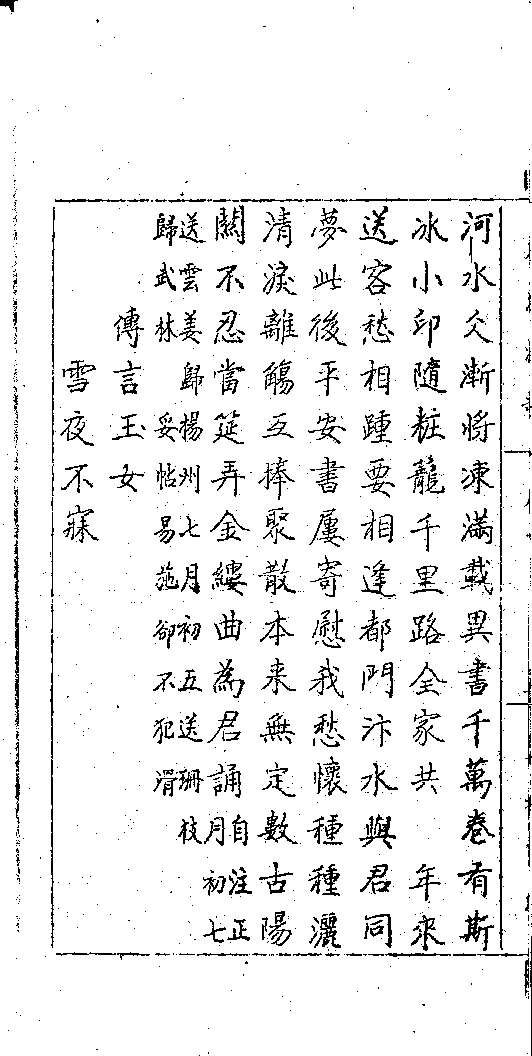 河水冫漸將凍滿載異書千萬卷有斯
冰小印隨粧籠千里路全家共　年來
送客愁相踵要相逢都門汴水與君同
夢此後平安書屢寄慰我愁懷種種灑
清淚離觴互捧聚散本來無定數古陽
關不忍當筵弄金縷曲為君誦自注正月初七
送雲姜歸揚州七月初五送珊枝
歸武林妥帖易施卻不犯滑
傳言玉女
雪夜不寐